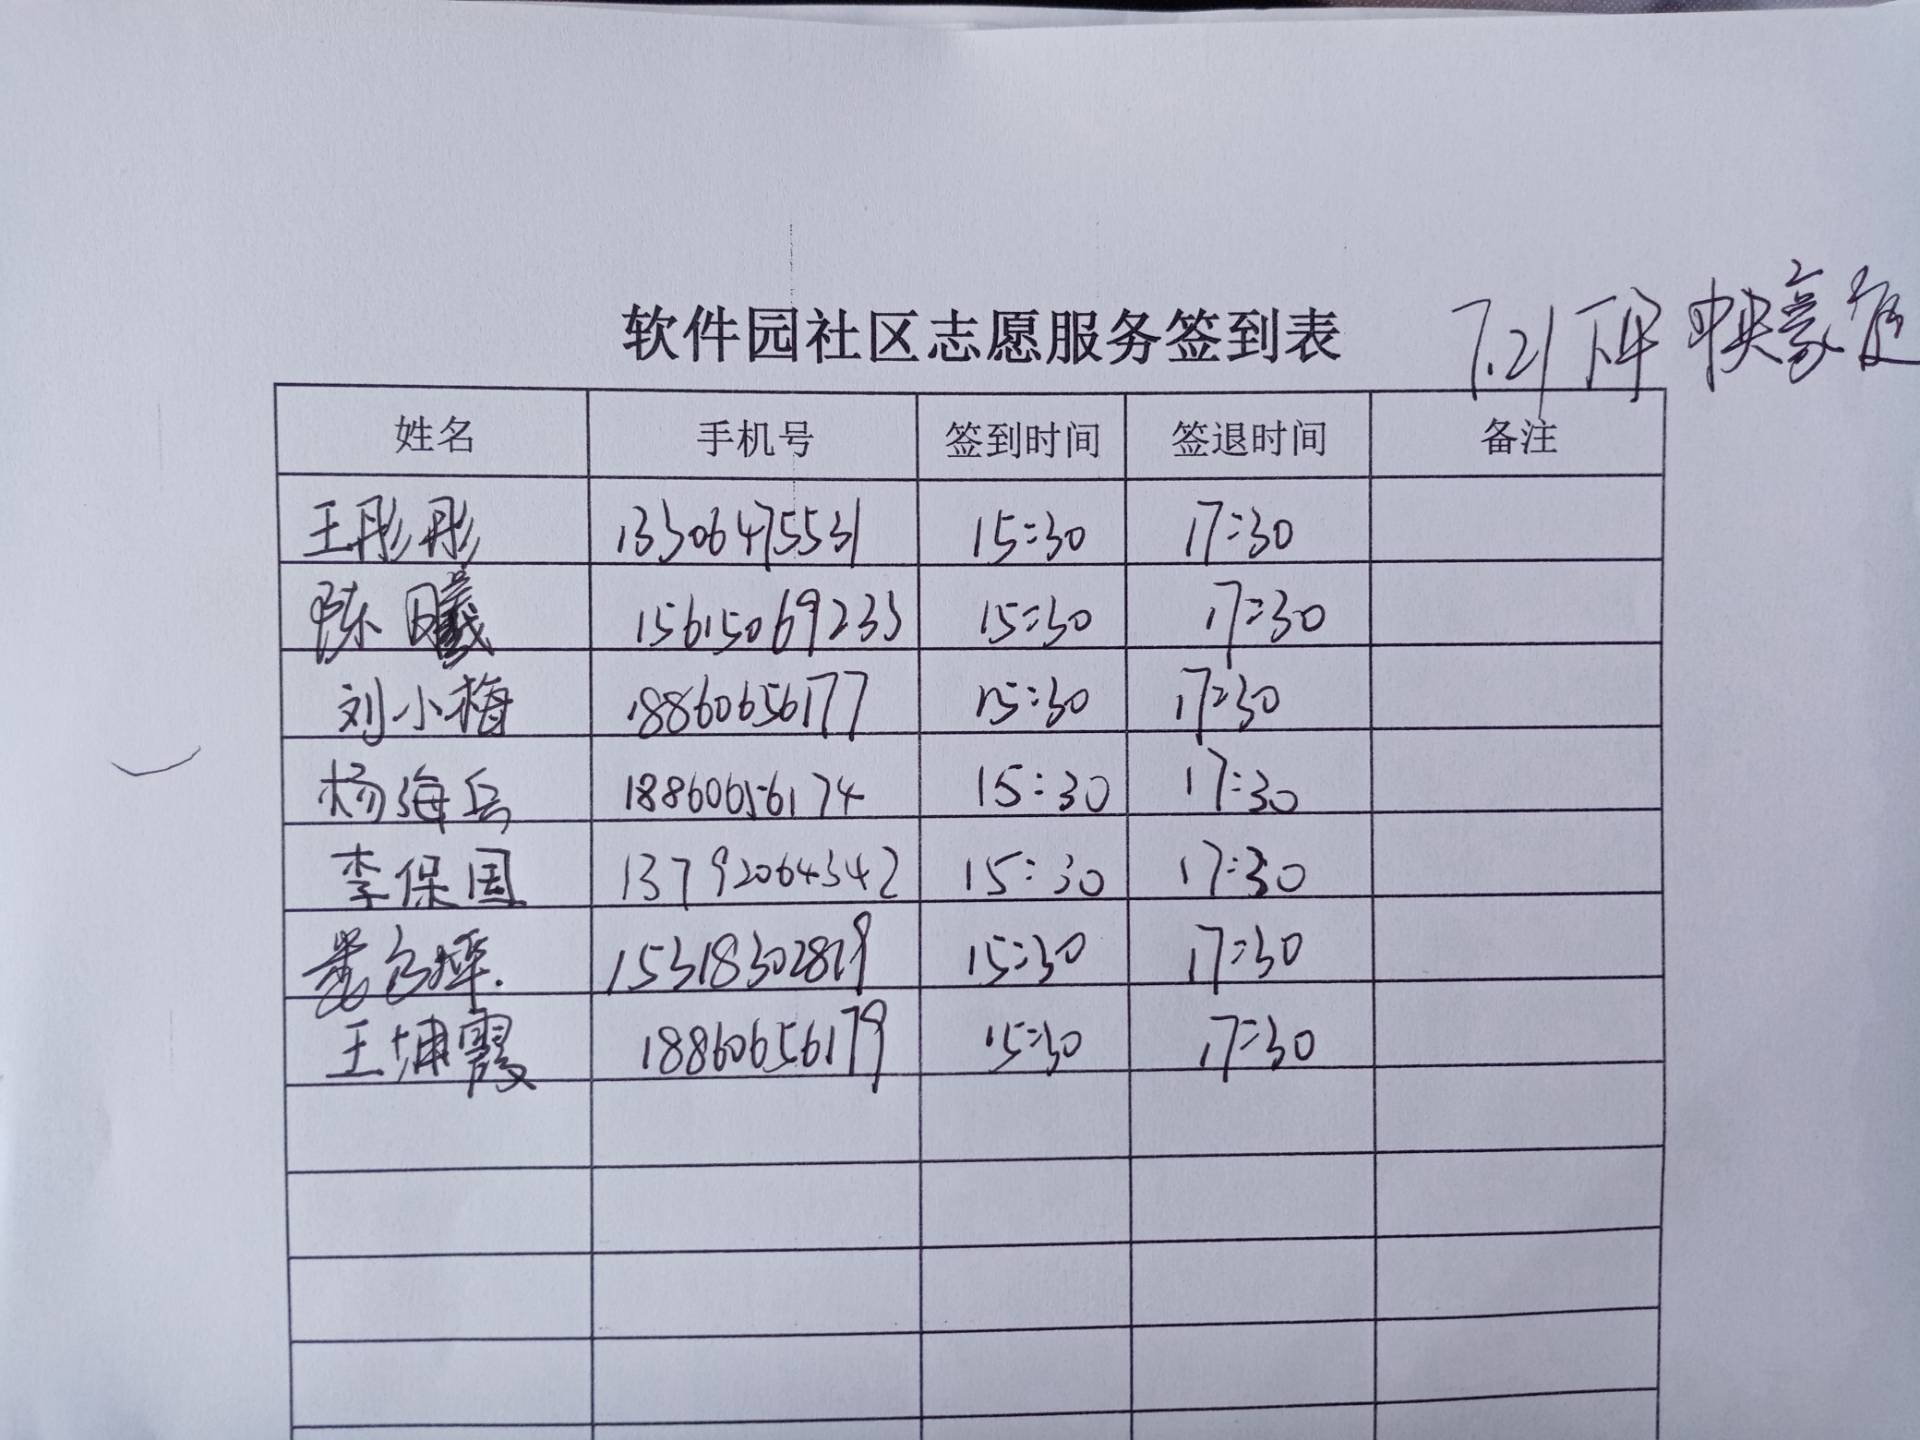 软件园社区志愿服务签到表 7.21 下午 中央豪庭
姓名 手机号 签到时间 签退时间 备注
王彤彤 13306475531 15:30 17:30
陈曦 15615069233 15:30 17:30
刘小梅 18860656177 15:30 17:30
杨海兵 18860656174 15:30 17:30
李保国 13792064342 15:30 17:30
15318302819 15:30 17:30
王埔霞 18860656179 15:30 17:30